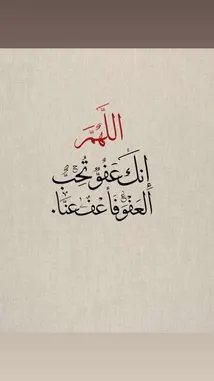 اللَّهُمَّ
إِنَّكَ عَفُوٌّ تُحِبُّ
الْعَفْوَ فَاعْفُ عَنَّا.